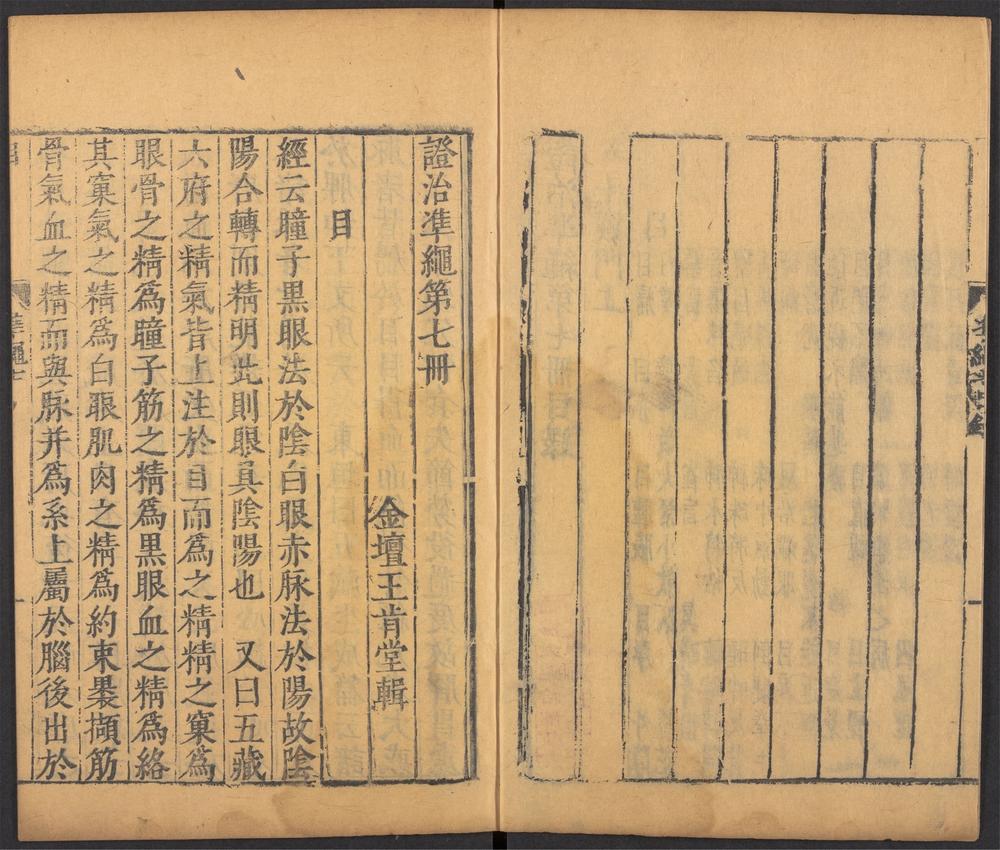 證治準繩第七冊
金壇王肯堂輯
目
經云瞳子黑眼法於陰白眼赤脉法於陽故陰
陽合轉而精明此則眼具陰陽也 又曰五藏
六府之精氣皆上注於目而為之精精之窠為
眼骨之精為瞳子筋之精為黑眼血之精為絡
其窠氣之精為白眼肌肉之精為約束裹擷筋
骨氣血之精而與脉并為系上屬於腦後出於